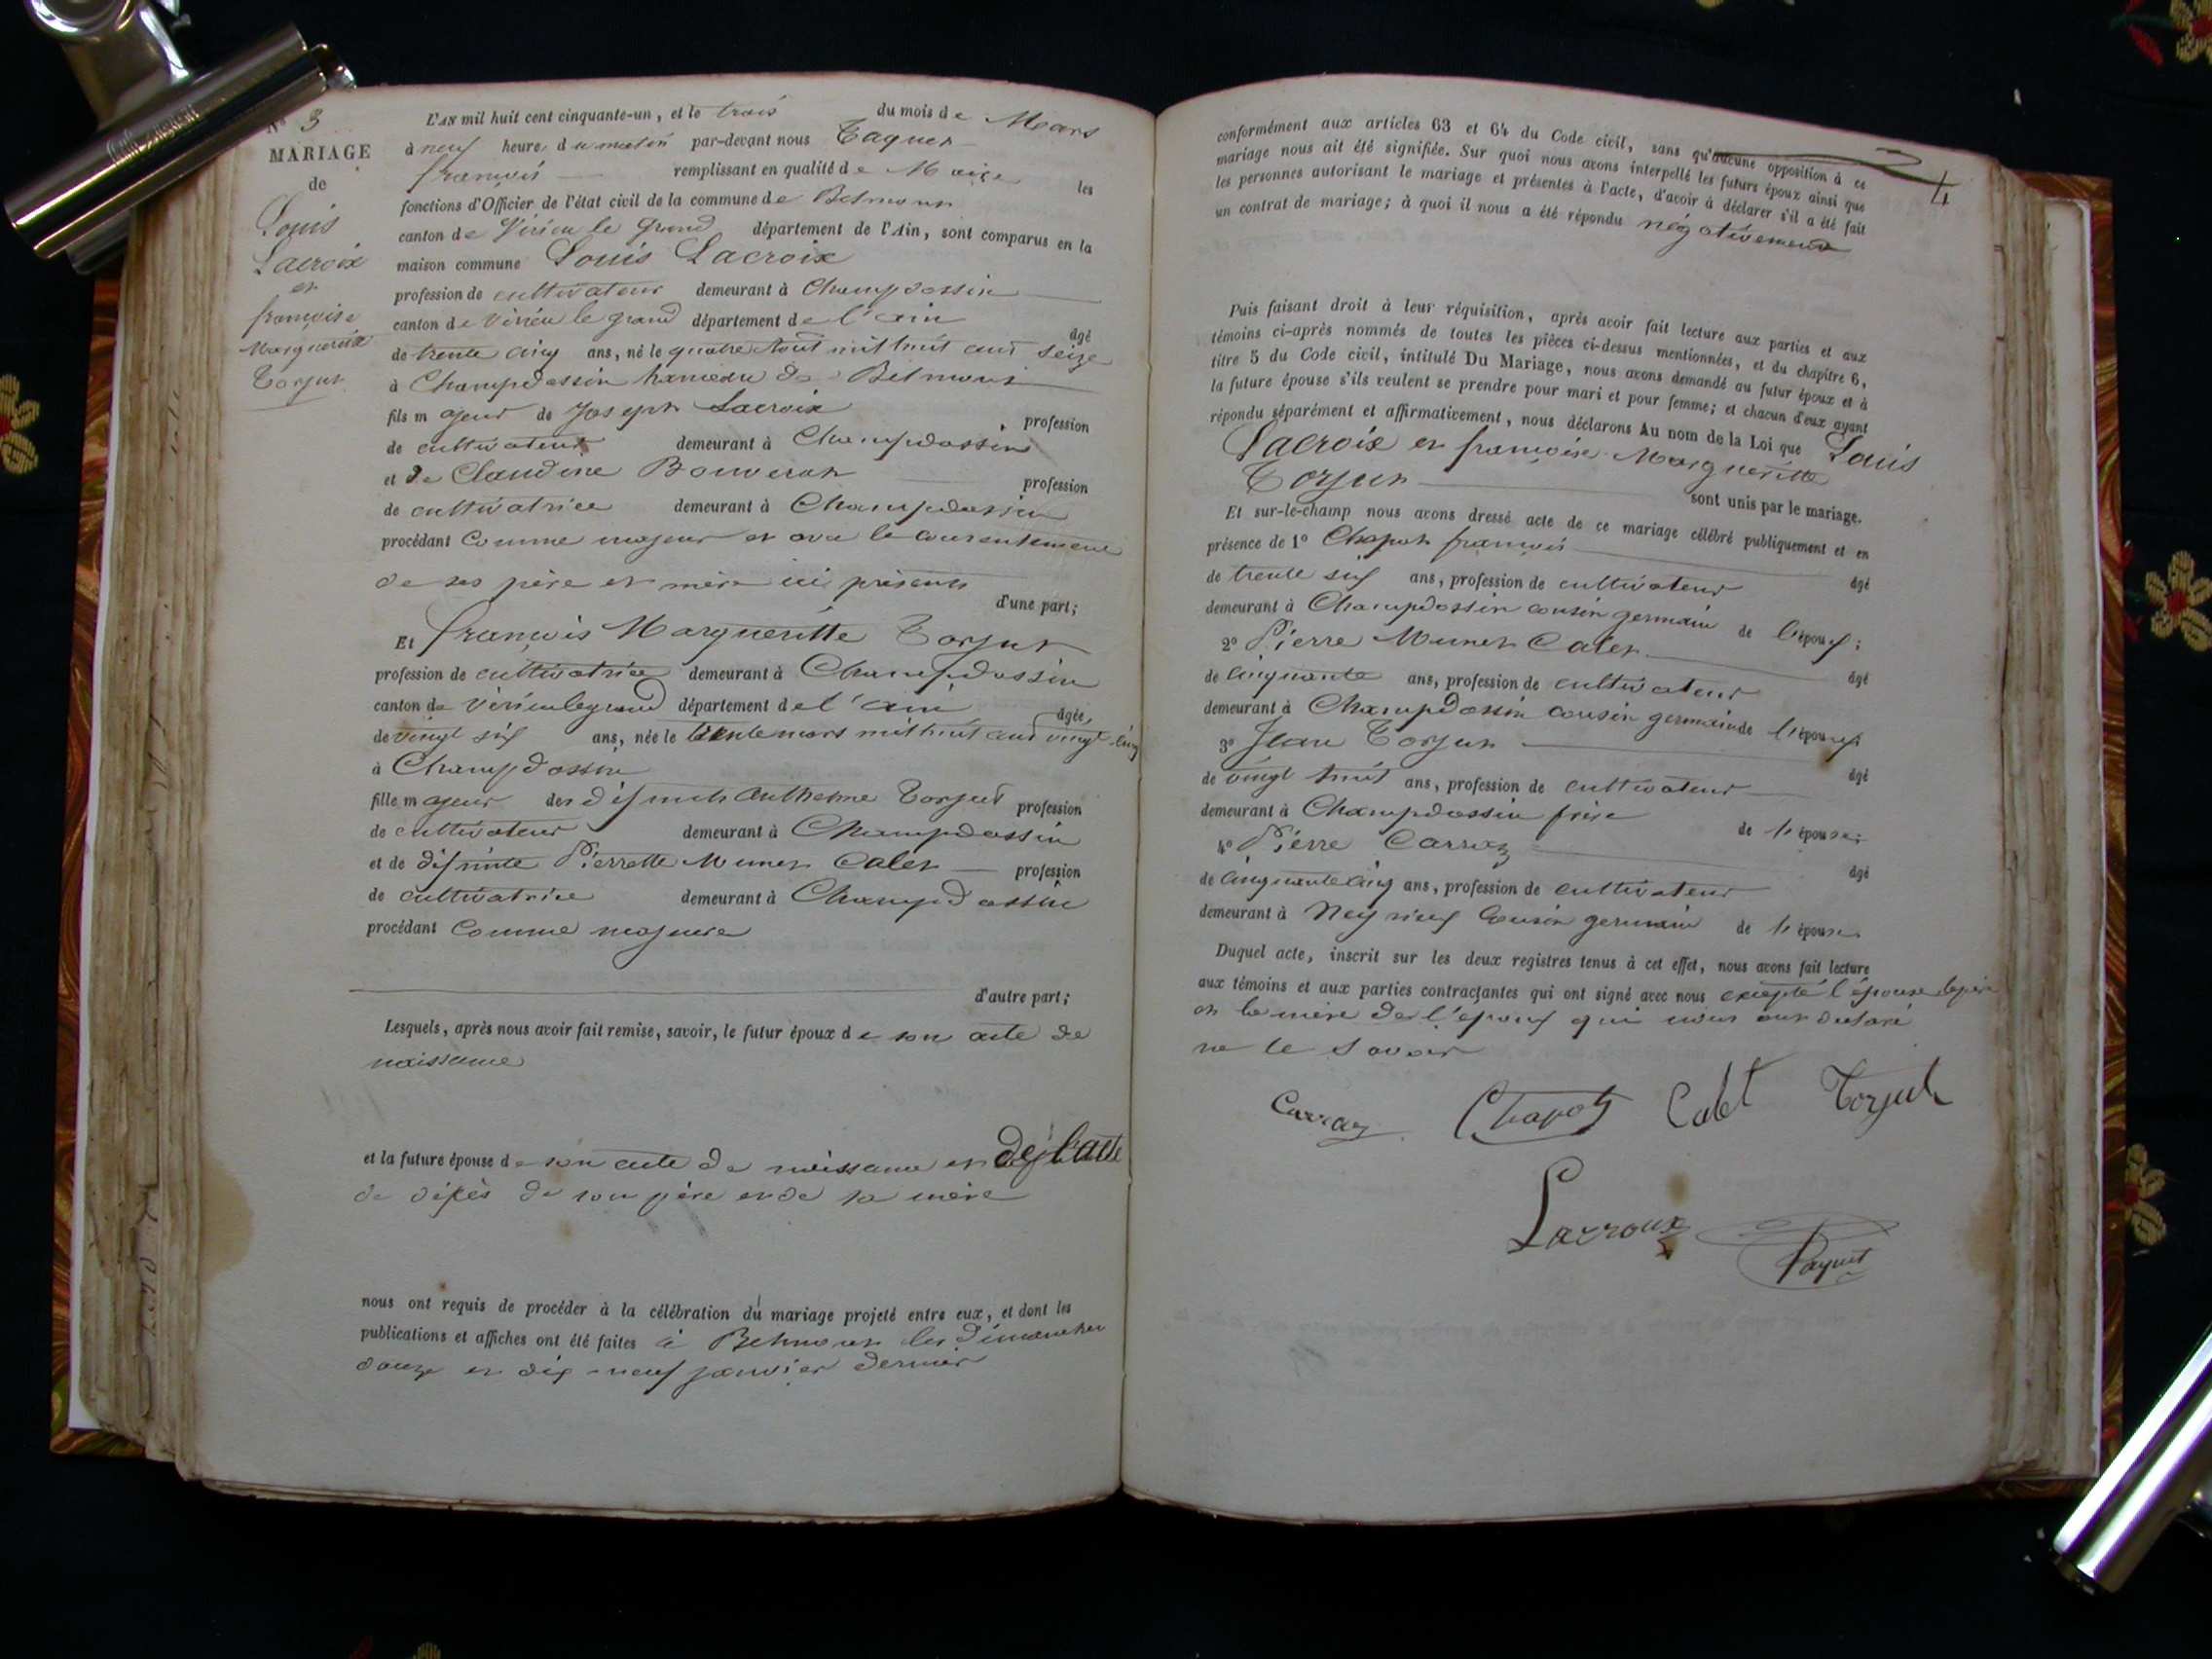 N° 3
MARIAGE
de
Louis
Lacroix
et
françoise
Margueritte
Torjut
L'AN mil huit cent cinquante-un, et le trois du mois de Mars
à neuf heure du matin par-devant nous
françois remplissant en qualité de Maire les
fonctions d'Officier de l'état civil de la commune de Belmont
canton de Virieu le Grand département de l'Ain, sont comparus en la
maison commune Louis Lacroix
profession de cultivateur demeurant à Champdossin
canton de Virieu le grand département de l'ain
âgé
de trente cinq ans, né le quatre Aout mil huit cent seize
à Champdossin hameau de Belmont
fils majeur de Joseph Lacroix
profession
de cultivateur demeurant à Champdossin
et de Claudine Bouverat
profession
de cultivatrice demeurant à Champdossin
procédant comme majeur et avec le consentement
de ses père et mère ici présents
d'une part;
Et françois Margueritte Torjut
profession de cultivatrice demeurant à Champdossin
canton de Virieu le grand département de l'ain
âgée
de vingt six ans, née le trente mars mil huit cent vingt cinq
à Champdossin
fille majeur des défunts Anthelme Torjut profession
de cultivateur demeurant à Champdossin
et de défunte Pierrette Munet Calet profession
de cultivatrice demeurant à Champdossin
procédant comme majeure
d'autre part;
Lesquels, après nous avoir fait remise, savoir, le futur époux de son acte de
naissance
et la future épouse de son acte de naissance et de l'acte
de décès de son père et de sa mère
nous ont requis de procéder à la célébration du mariage projeté entre eux, et dont les
publications et affiches ont été faites à Belmont les dimanches
douze et dix-neuf janvier dernier
4
conformément aux articles 63 et 64 du Code civil, sans qu'aucune opposition à ce
mariage nous ait été signifiée. Sur quoi nous avons interpellé les futurs époux ainsi que
les personnes autorisant le mariage et présentes à l'acte, d'avoir à déclarer s'il a été fait
un contrat de mariage; à quoi il nous a été répondu négativement
Puis faisant droit à leur réquisition, après avoir fait lecture aux parties et aux
témoins ci-après nommés de toutes les pièces ci-dessus mentionnées, et du chapitre 6,
titre 5 du Code civil, intitulé Du Mariage, nous avons demandé au futur époux et à
la future épouse s'ils veulent se prendre pour mari et pour femme; et chacun d'eux ayant
répondu séparément et affirmativement, nous déclarons Au nom de la Loi que Louis
Lacroix et françoise Margueritte
Torjut sont unis par le mariage.
Et sur-le-champ nous avons dressé acte de ce mariage célébré publiquement et en
présence de 1° Chapot françois
âgé
de trente six ans, profession de cultivateur
demeurant à Champdossin cousin germain de l'époux;
2° Pierre Munet Calet
âgé
de cinquante ans, profession de cultivateur
demeurant à Champdossin cousin germain de l'époux;
3° Jean Torjut
âgé
de vingt huit ans, profession de cultivateur
demeurant à Champdossin frère de l'épouse;
4° Pierre Carraz
âgé
de cinquante cinq ans, profession de cultivateur
demeurant à Neyrieu cousin germain de l'épouse
Duquel acte, inscrit sur les deux registres tenus à cet effet, nous avons fait lecture
aux témoins et aux parties contractantes qui ont signé avec nous excepté l'épouse le père
et la mère de l'époux qui nous ont déclaré
ne le savoir
Carraz Chapot Calet Torjut
Lacroux